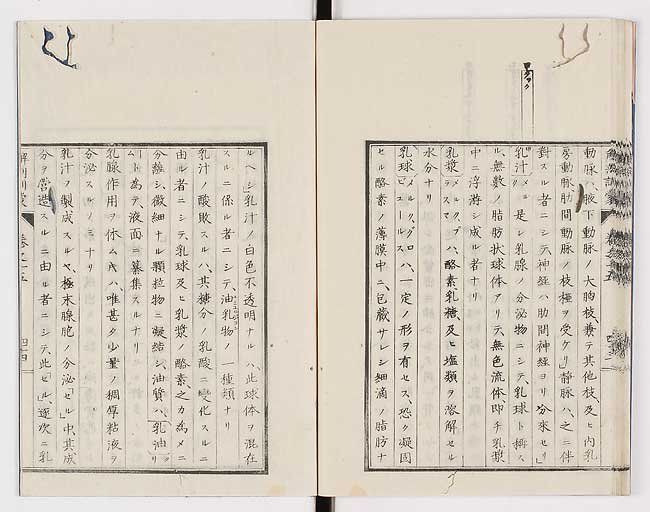 動脉ハ、腋下動脉ノ大胸枝、兼テ其他枝及ヒ内乳
房動脉肋間動脉ノ枝極ヲ受ケリ」静脉ハ、之ニ伴
對スル者ニシテ、神経ハ肋間神経ヨリ分來セリ」
乳汁メルク是レ乳腺ノ分泌物ニシテ、乳球ト稱ス
ル無數ノ脂肪状球体アリテ、無色流体即チ乳漿
中ニ浮游シ成ル者ナリ
乳漿メルクプラスマハ、酪素、乳糖、及ヒ塩類ヲ溶解セル
水分ナリ
乳球メルクグロビュールスハ、一定ノ形ヲ有セス、恐ク凝固
セル酪素ノ薄膜中ニ、包蔵サレシ細滴ノ脂肪ナ
ルヘシ、乳汁ノ白色不透明ナルハ、此球体ヲ混在
スルニ係ル者ニシテ、油乳物ノ一種類ナリ
乳汁ノ酸敗スルハ、其糖分ノ乳酸ニ變化スルニ
由ル者ニシテ、乳球及ヒ乳漿ノ酪素之カ為メニ
分離シ、微細ナル顆粒物ニ凝結シ、油質ハ、乳油
ト為テ、液面ニ蒐集スルナリ
乳腺作用ヲ休ムキハ、唯甚タ少量ノ稠厚粘液ヲ
分泌スルノミナリ
乳汁ノ製成スルヤ、極末腺胞ノ分泌「セル」中、其成
分ヲ營造スルニ由ル者ニシテ、此「セル」、逐次ニ乳
解剖訓蒙 卷之十五 四十四